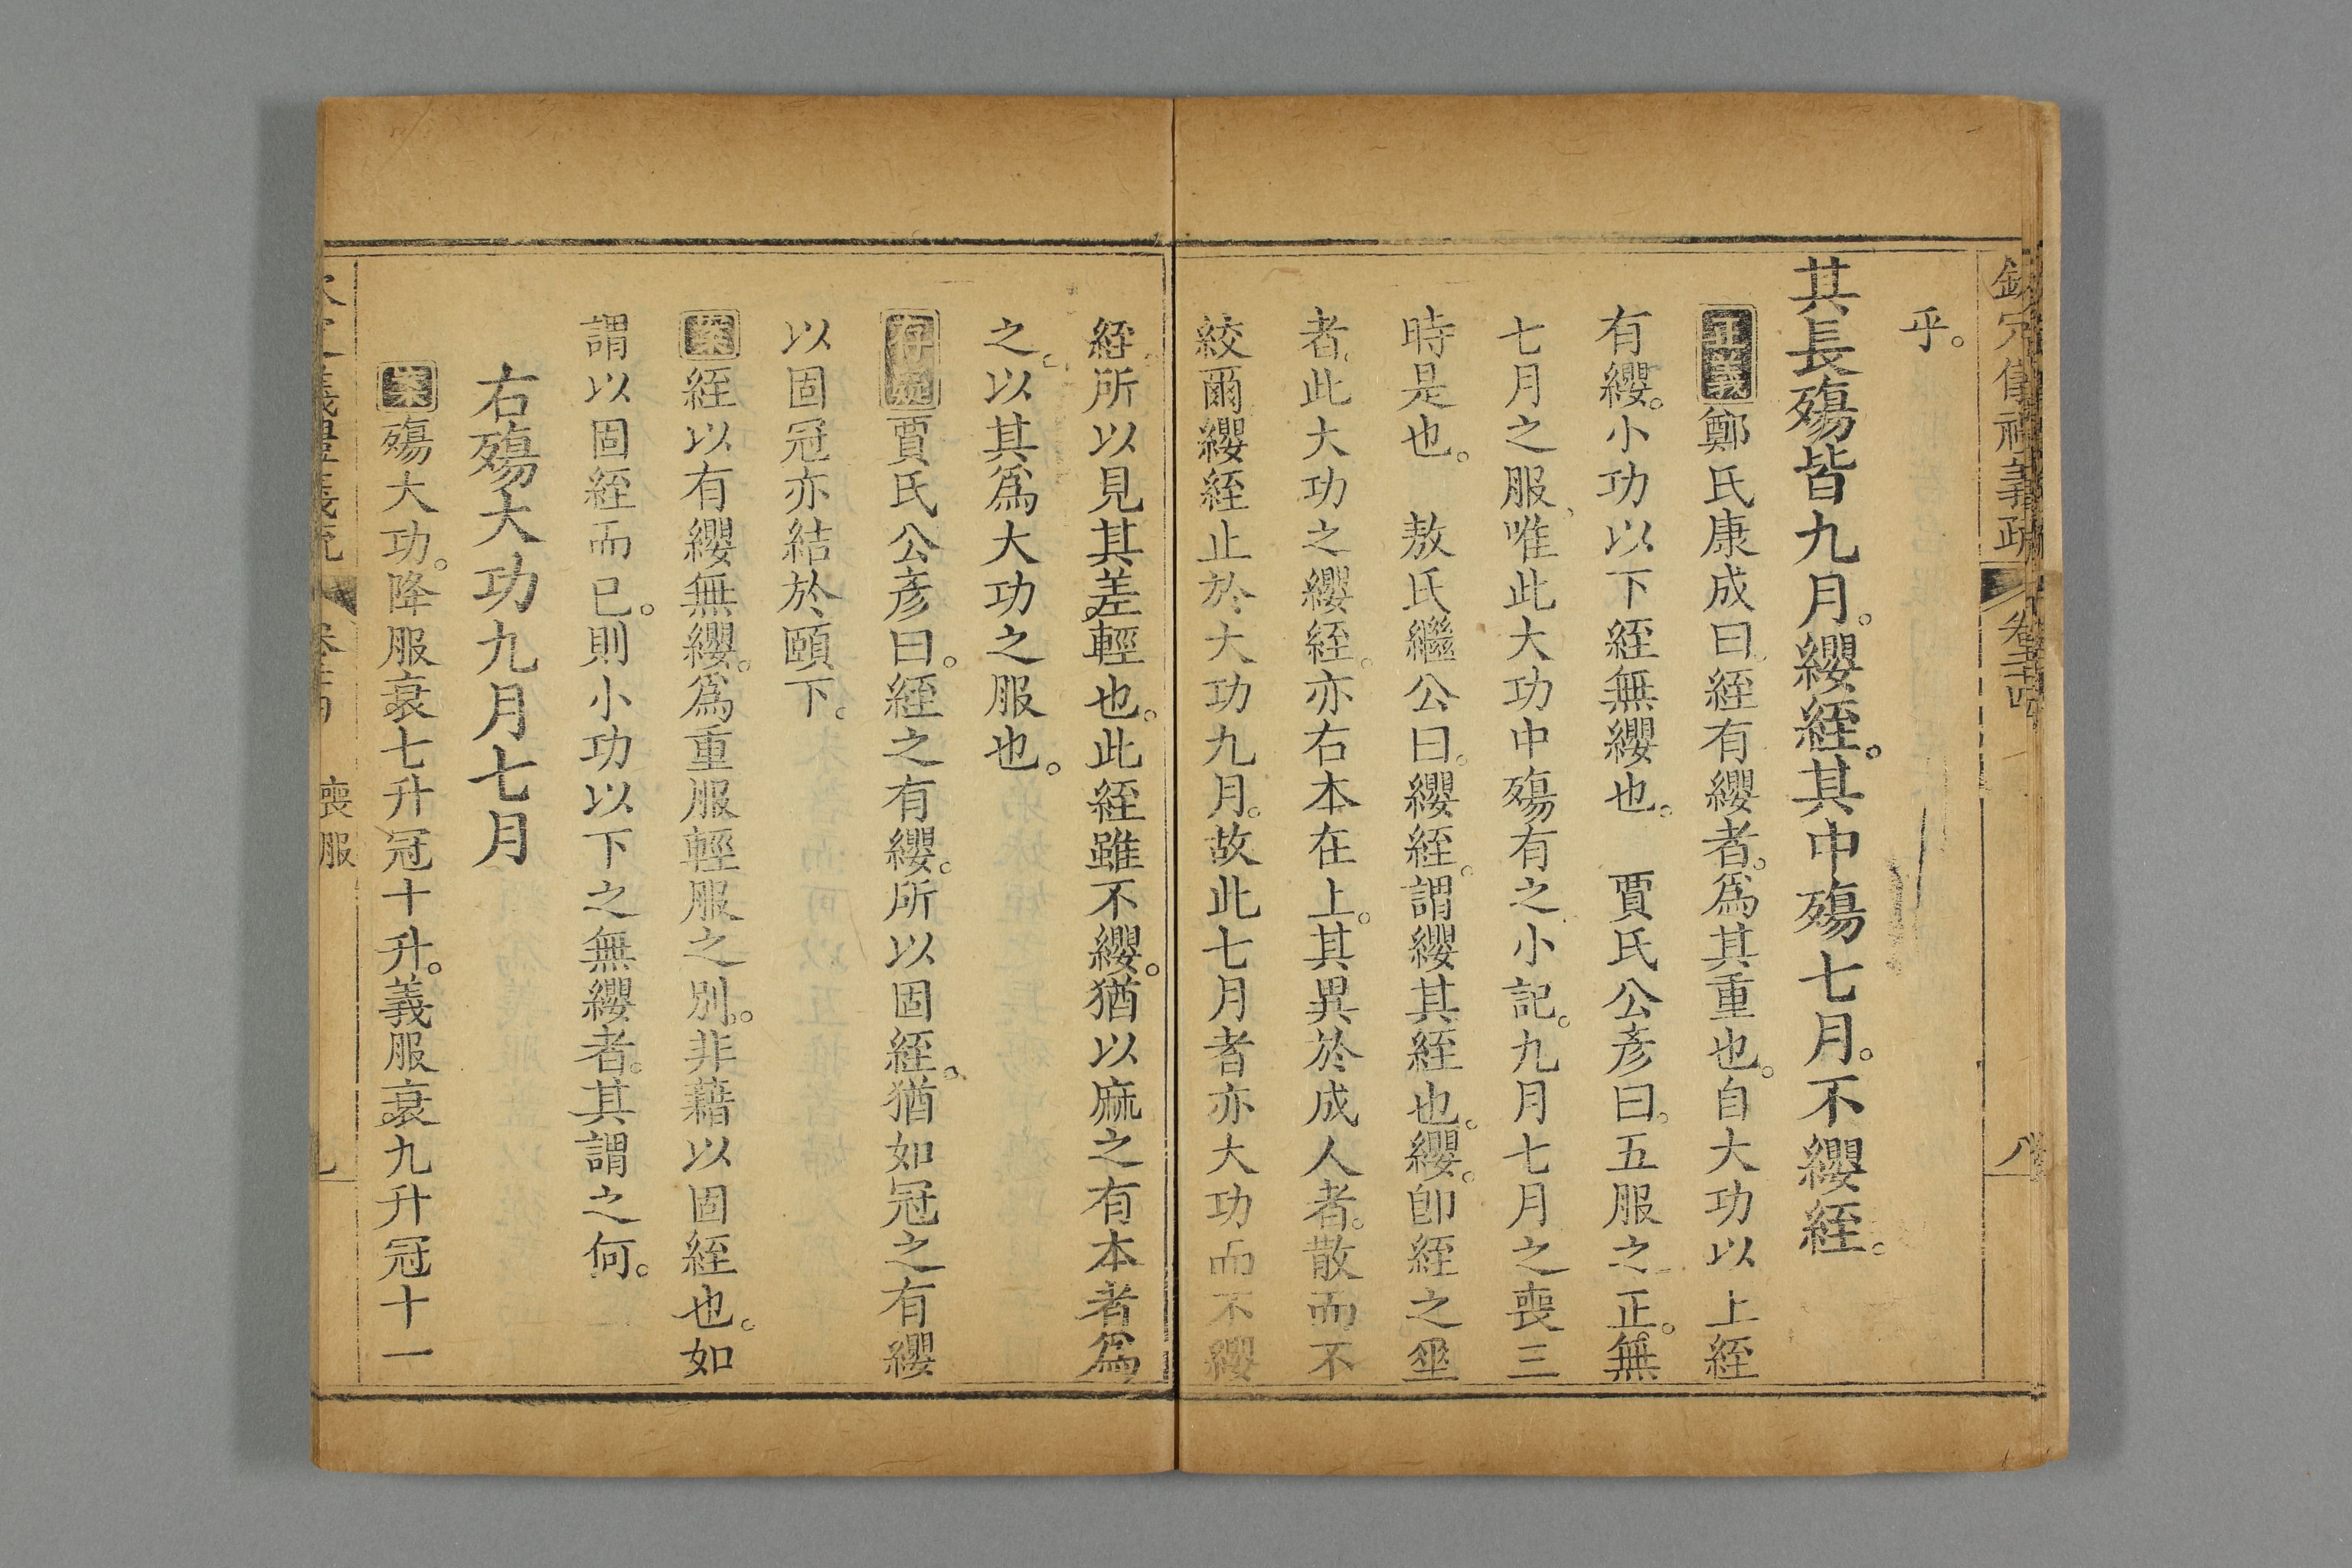 欽定儀禮義疏 卷二十四 八
乎。
其長殤皆九月。纓絰。其中殤七月。不纓絰。
正義鄭氏康成曰。絰有纓者。爲其重也。自大功以上絰
有纓。小功以下絰無纓也。 賈氏公彥曰。五服之正。無
七月之服、唯此大功中殤有之、小記。九月七月之喪三
時是也。 敖氏繼公曰。纓絰。謂纓其絰也。纓。卽絰之垂
者。此大功之纓絰。亦右本在上。其異於成人者。散而不
絞爾纓絰止於大功九月。故此七月者亦大功而不纓
絰。所以見其差輕也。此絰雖不纓。猶以麻之有本者爲
之。以其爲大功之服也。
存疑賈氏公彥曰。絰之有纓。所以固絰。猶如冠之有纓
以固冠亦結於頤下。
案絰以有纓無纓。爲重服輕服之別。非藉以固絰也。如
謂以固絰而已。則小功以下之無纓者。其謂之何。
右殤大功九月七月
案殤大功。降服衰七升冠十升。義服衰九升冠十一
喪服